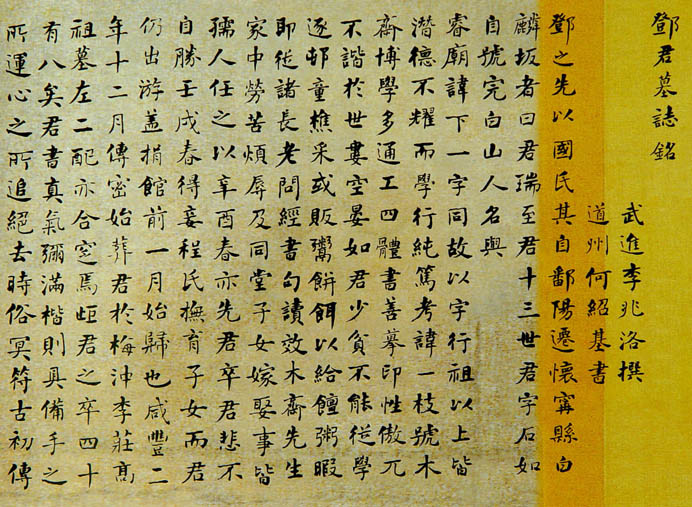 鄧君墓誌銘
武進李兆洛撰
道州何紹基書
鄧之先以國氏其自鄱陽遷懷甯縣白
麟坂者曰君瑞至君十三世君字石如
自號完白山人名與
睿廟諱下一字同故以字行祖以上皆
潛德不耀而學行純篤考諱一枝號木
齋博學多通工四體書善摹印性傲兀
不諧於世婁空晏如君少貧不能從學
逐邨童樵采或販鬻餅餌以給饘粥暇
即從諸長老問經書句讀效木齋先生
家中勞苦煩辱及同堂子女嫁娶事皆
孺人任之以辛酉春亦先君卒君悲不
自勝壬戌春得妾程氏撫育子女而君
仍出游蓋捐館前一月始歸也咸豐二
年十二月傳密始葬君於梅沖李莊高
祖墓左二配亦合窆焉歫君之卒四十
有八矣君書真氣彌滿楷則具備手之
所運心之所追絕去時俗冥符古初傳